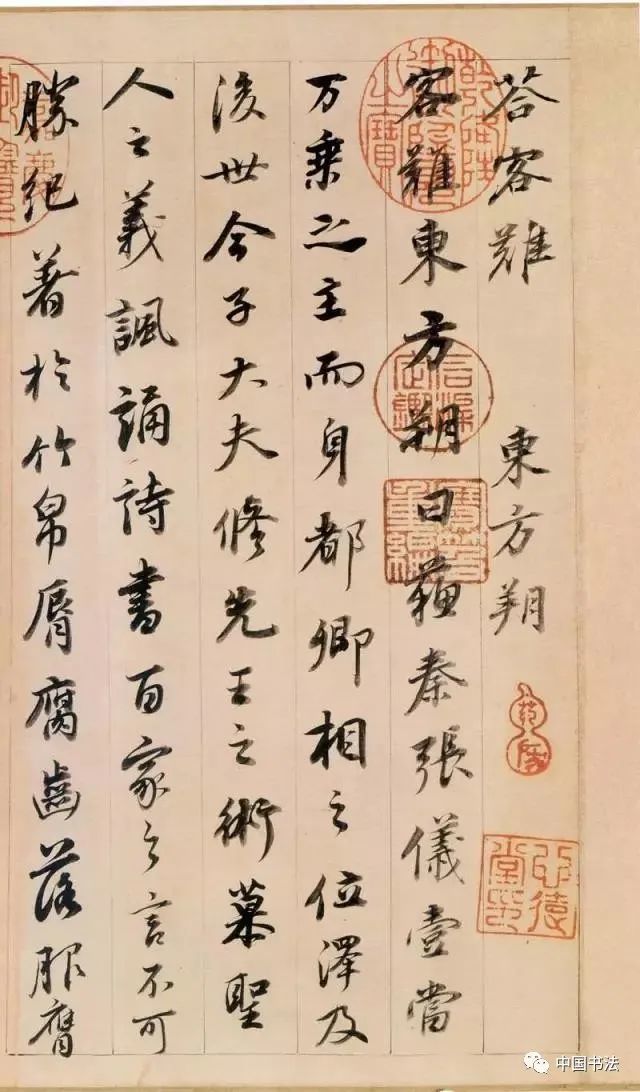 荅客難 東方朔
客難東方朔曰蘓秦張儀壹當
万乗之主而身都卿相之位澤及
後世今子大夫修先王之術慕聖
人之義諷誦詩書百家之言不可
勝紀著於竹帛脣腐齒落服膺
中国书法